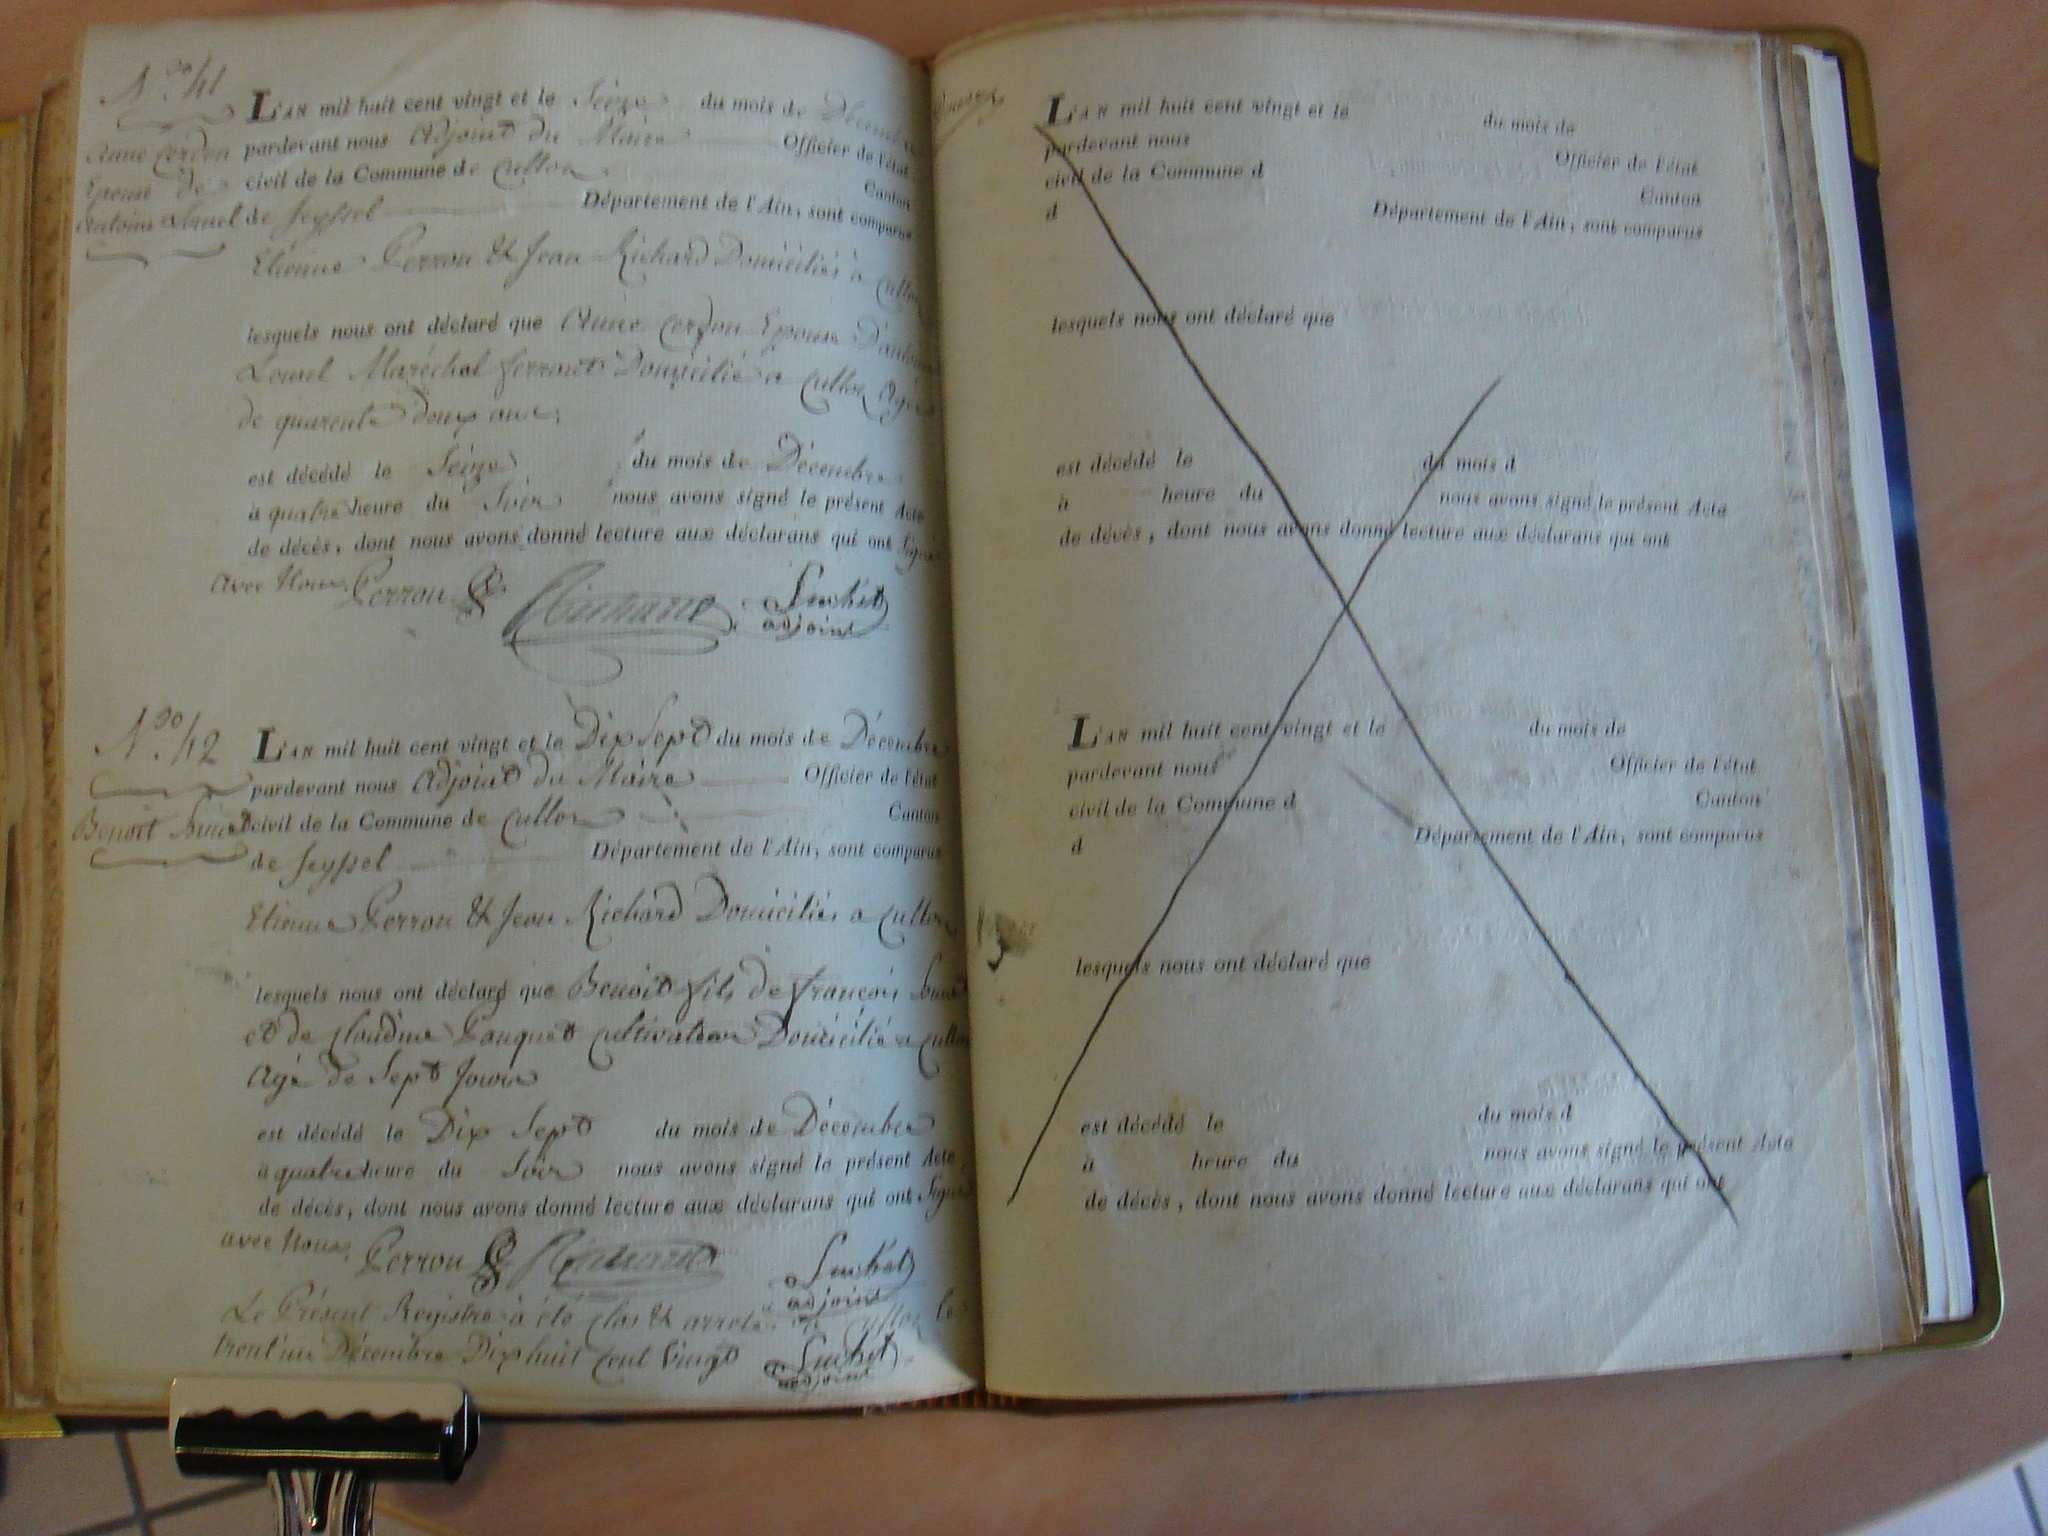 N.° 41
Anne Cerdon
Epouse de
Antoine Louvel
L'AN mil huit cent vingt et le Seize du mois de Décembre
pardevant nous Adjoint du Maire Officier de l'état
civil de la Commune de Culloz Canton
de Seyssel Département de l'Ain, sont comparus
Etienne Perron & Jean Richard Domiciliés à Culloz
lesquels nous ont déclaré que Anne Cerdon Epouse D'antoine
Maréchal ferrant Domicilié a Culloz Agée
de quarente deux ans;
est décédé le Seize du mois de Décembre
à quatre heure du Soir nous avons signé le présent Acte
de décès, dont nous avons donné lecture aux déclarans qui ont Signé
avec Nous. Perron Richard
adjoint
N.° 42
Benoit
L'AN mil huit cent vingt et le Dix Sept du mois de Décembre
pardevant nous Adjoint du Maire Officier de l'état
civil de la Commune de Culloz Canton
de Seyssel Département de l'Ain, sont comparus
Etienne Perron & Jean Richard Domiciliés a Culloz
lesquels nous ont déclaré que Benoit fils de françois
et de Claudine Pauquet Cultivateur Domicilié a Culloz
Agé de Sept Jours
est décédé le Dix Sept du mois de Décembre
à quatre heure du Soir nous avons signé le présent Acte
de décès, dont nous avons donné lecture aux déclarans qui ont Signé
avec Nous. Perron Richard
adjoint
Le Présent Registre à été Clos & arrêté à Culloz le
trent'un Décembre Dix huit Cent Vingt
adjoint
L'AN mil huit cent vingt et le du mois de
pardevant nous Officier de l'état
civil de la Commune d Canton
d Département de l'Ain, sont comparus
lesquels nous ont déclaré que
est décédé le du mois d
à heure du nous avons signé le présent Acte
de décès, dont nous avons donné lecture aux déclarans qui ont
L'AN mil huit cent vingt et le du mois de
pardevant nous Officier de l'état
civil de la Commune d Canton
d Département de l'Ain, sont comparus
lesquels nous ont déclaré que
est décédé le du mois d
à heure du nous avons signé le présent Acte
de décès, dont nous avons donné lecture aux déclarans qui ont